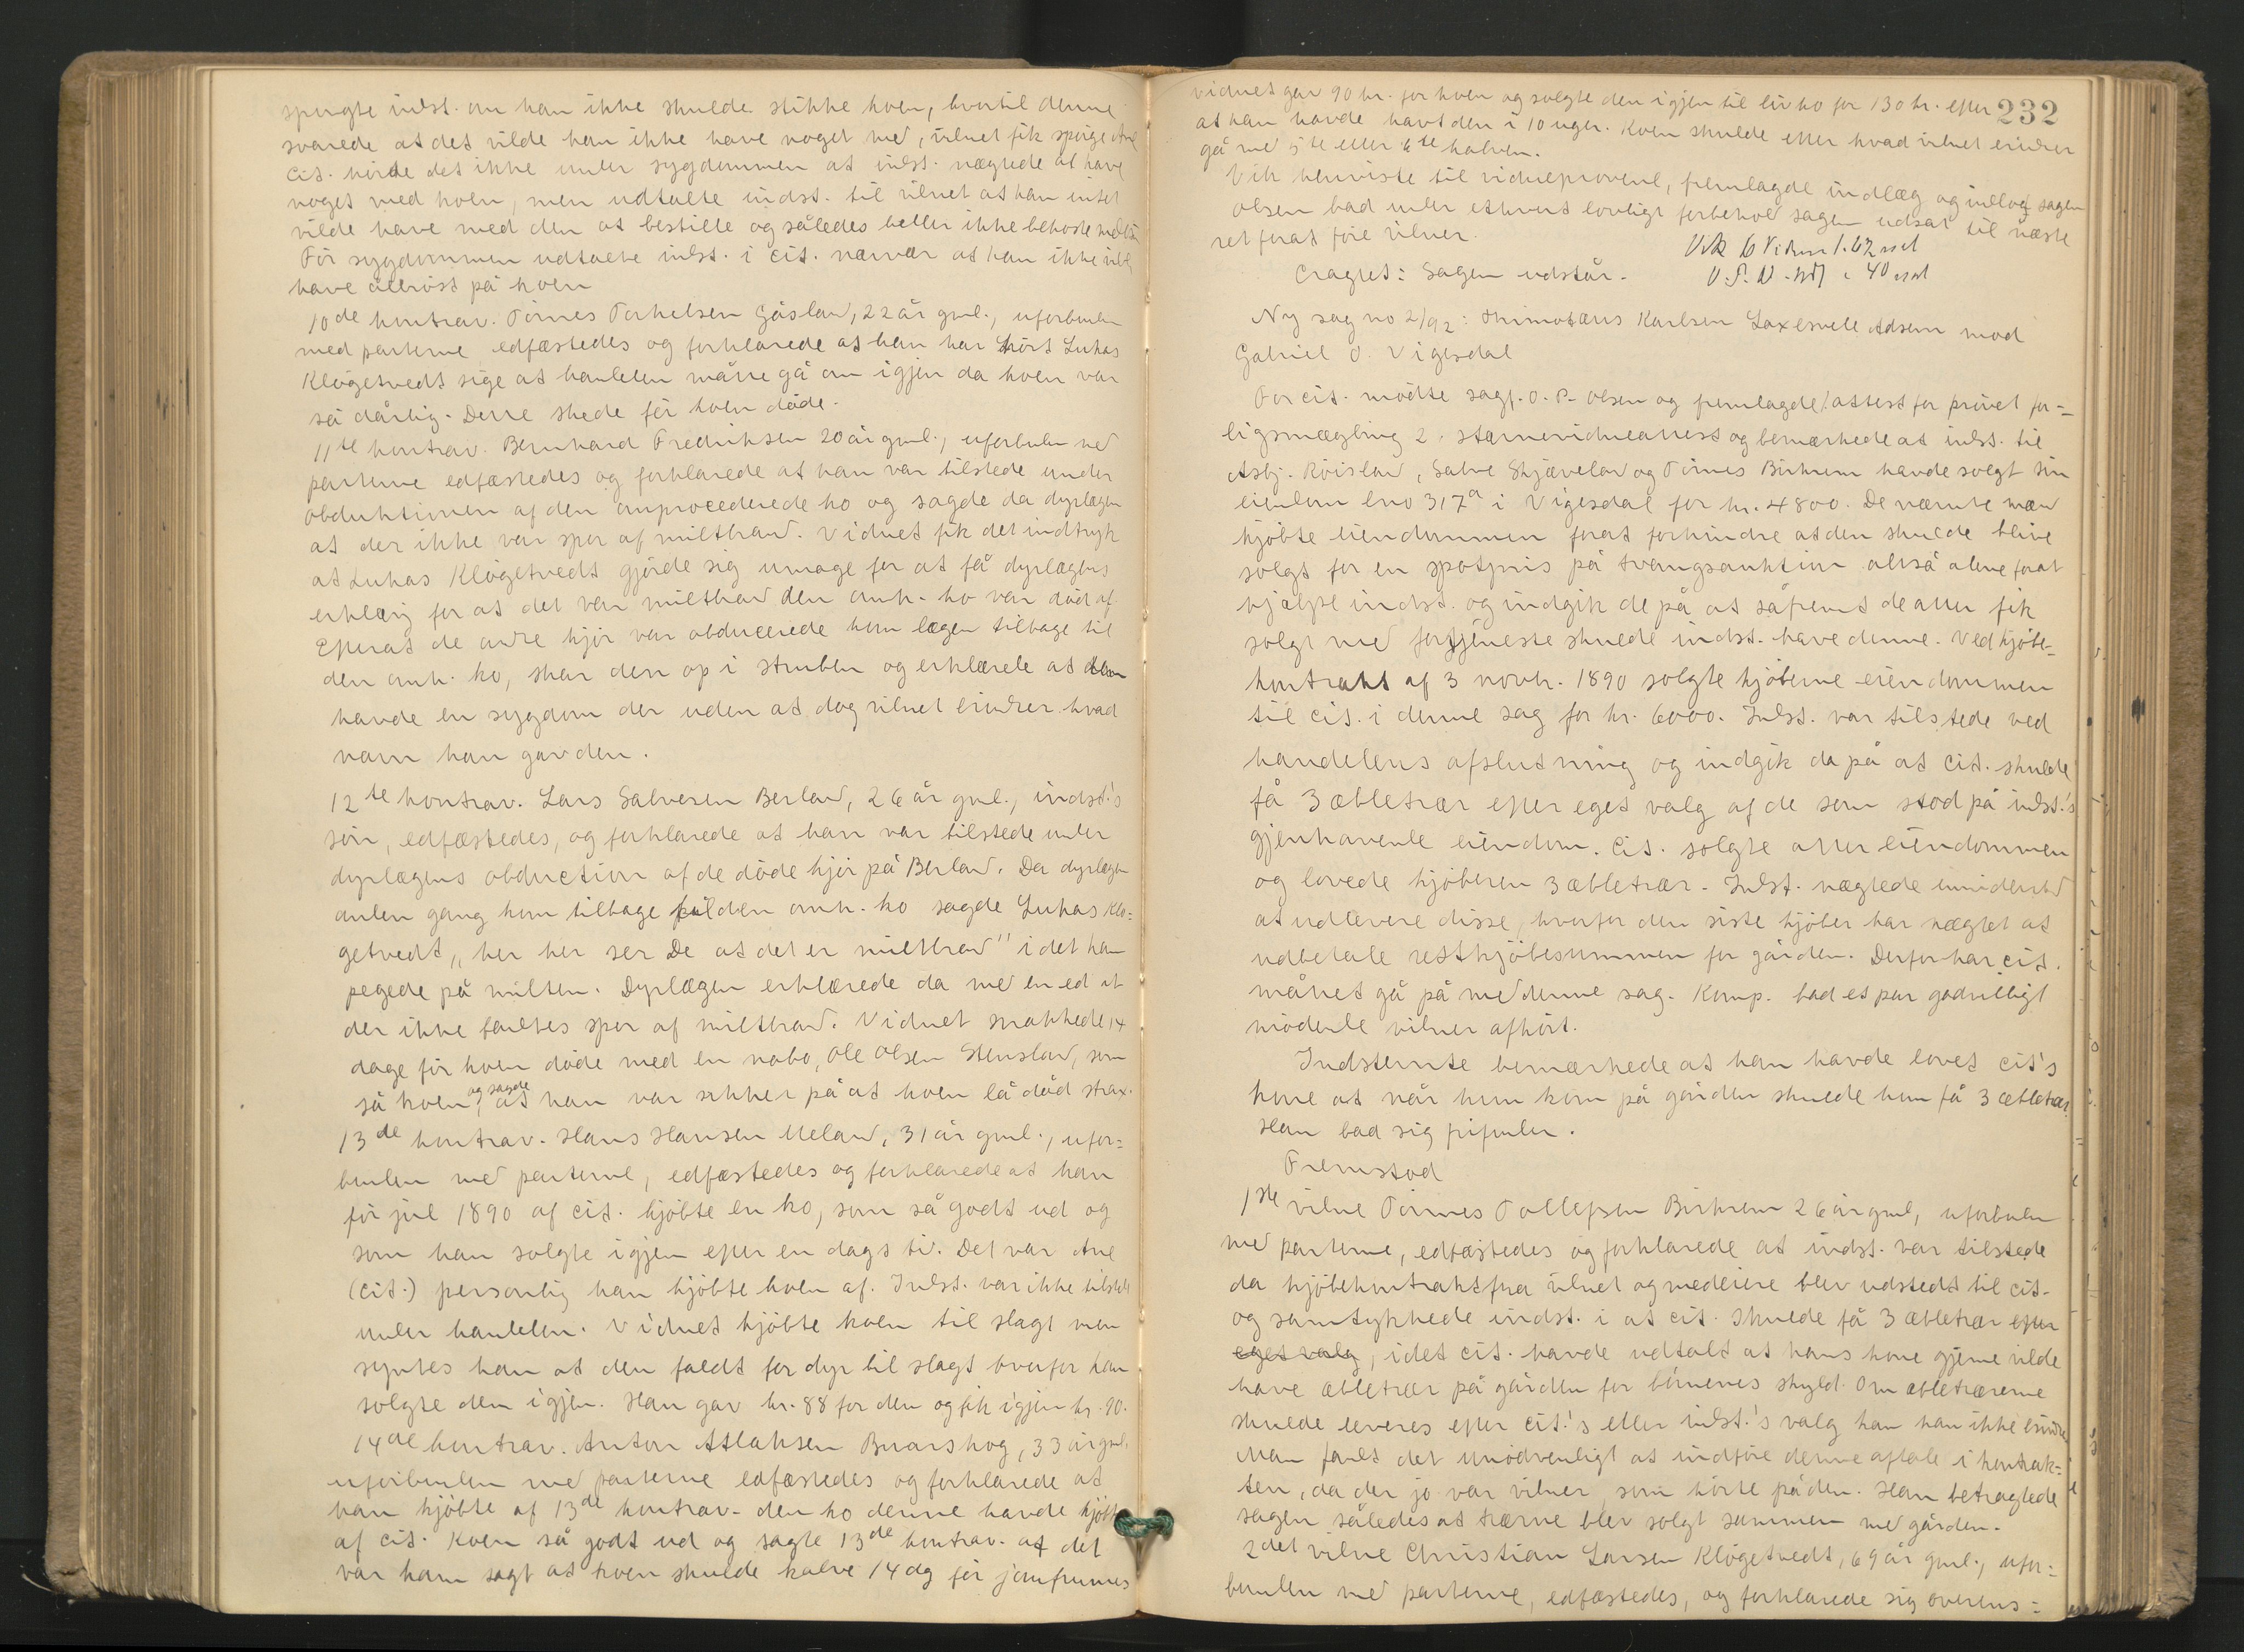 spurgte indst. om han ikke skulde stikke koen, hvortil denne
svarede at det vilde han ikke have noget med, vidnet fik spørge Ane
Cit. hørde det ikke under sygdommen at indst. nægtede at have
noget med koen, men udtalte indst. til vidnet at han intet
vilde have med den at bestille og således heller ikke bekoste medisin
Før sygdommen udtalte indst. i cit. nærvær at han ikke vilde
have åbrost på koen
10de kontrav. Tønnes Torkelsen Gåsland, 22 år gml., uforbunden
med parterne edfæstedes og forklarede at han har hørt Lukas
Kløgetvedt sige at handelen måtte gå om igjen da koen var
så dårlig. Dette skede før koen døde.
11te kontrav. Bernhard Fredriksen 20 år gml., uforbunden med
parterne edfæstedes og forklarede at han var tilstede under
obduktionen af den omprocederede ko og sagde da dyrlægen
at der ikke var spor af miltbrand. Vidnet fik det indtryk
at Lukas Kløgetvedt gjorde sig umage for at få dyrlægens
erklæring for at det var miltbrand den omh. ko var død af.
Efterat de andre kjør var obducerede kom lægen tilbage til
den omh. ko, skar den op i struben og erklærede at den
havde en sygdom der uden at dog vidnet erindrer hvad
navn han gav den.
12te kontrav. Lars Salvesen Berland, 26 år gml., indst.'s
søn, edfæstedes, og forklarede at han var tilstede under
dyrlægens obduction af de døde kjør på Berland. Da dyrlægen
anden gang kom tilbage til den omh. ko sagde Lukas Klø=
getvedt, "her her ser De at det er miltbrand" i det han
pegede på milten. Dyrlægen erklærede da med en ed at
der ikke fandtes spor af miltbrand. Vidnet snakkede 14
dage før koen døde med en nabo, Ole Olsen Stensland, som
så koen, og sagde at han var sikker på at koen lå død strax.
13de kontrav. Hans Hansen Meland, 31 år gml., ufor=
bunden med parterne, edfæstedes og forklarede at han
før jul 1890 af cit. kjøbte en ko, som så godt ud og
som han solgte igjen efter en dags tid. Det var Ane
(cit.) personlig han kjøbte koen af. Indst. var ikke tilstede
under handelen. Vidnet kjøbte koen til slagt men
syntes han at den faldt for dyr til slagt hvorfor han
solgte den igjen. Han gav kr. 88 for den og fik igjen kr. 90.
14de kontrav. Anton Atlaksen Bruarskog, 33 år gml.
uforbunden med parterne edfæstedes og forklarede at
han kjøbte af 13de kontrav. den ko denne havde kjøbt
af cit. Koen så godt ud og sagte 13de kontrav. at det
var ham sagt at koen skulde kalve 14 dg før jomfrumes
232
vidnet gav 90 kr. for koen og solgte den igjen til liv ko for 130 kr. efter
at han havde havt den i 10 uger. Koen skulde efter hvad vidnet erindrer
gå med 5te eller 6te kalven.
Vik henviste til vidneprovene, fremlagde indlæg og indlod sagen
Olsen bad under ethvert lovligt forbehold sagen udsat til næste
ret forat føre vidner.
Eragtet: Sagen udstår.
Vik 6 Vidner 1.62 
O. P. O. 40 
Ny sag no 2/92: Thimotæus Karlsen Laxesvele Adsem mod
Gabriel O. Vigesdal
For cit. mødte sagf. O. P. Olsen og fremlagde 1. attest for prøvet for=
ligsmægling 2. stævnevidneattest og bemærkede at indst. til
Asbj. Røisland, Salve Skjæveland og Tønnes Birkrem havde solgt sin
eiendom bno 317a i Vigesdal for kr. 4800. De nævnte mænd
kjøbte eiendommen forat forhindre at den skulde blive
solgt for en spotpris på tvangsauktion altså alene forat
hjælpe indst. og indgik de på at såfremt de atter fik
solgt med fortjeneste skulde indst. have denne. Ved kjøbe=
kontrakt af 3 novbr. 1890 solgte kjøberne eiendommen
til cit. i denne sag for kr. 6000. Indst. var tilstede ved
handelens afslutning og indgik da på at cit. skulde
få 3 æbletrær efter eget valg af de som stod på indst.'s
gjenhavende eiendom. Cit. solgte atter eiendommen
og lovede kjøberen 3 æbletrær. Indst. nægtede imidlertid
at udlevere disse, hvorfor den siste kjøber har nægtet at
udbetale restkjøbesummen for gården. Derfor har cit.
måttet gå på med denne sag. Komp. bad et par godvilligt
mødende vidner afhørt.
Indstevnte bemærkede at han havde lovet cit's
kone at når hun kom på gården skulde hun få 3 æbletrær.
Han bad sig frifunden.
Fremstod
1ste vidne Tønnes Tollefsen Birkrem 26 år gml, uforbunden
med parterne, edfæstedes og forklarede at indst. var tilstede
da kjøbekontrakt fra vidnet og medeiere blev udstedt til cit.
og samtykkede indst. i at cit. skulde få 3 æbletrær efter
eget valg, idet cit. havde udtalt at hans kone gjerne vilde
have æbletrær på gården for børnenes skyld. Om æbletrærene
skulde leveres efter cit.'s eller indst.'s valg kan han ikke erindre
Man fandt det unødvendigt at indføre denne aftale i kontrak=
ten, da der jo var vidner som hørte på den. Han betragtede
sagen således at trærne blev solgt sammen med gården.
2det vidne Christian Larsen Kløgetvedt, 69 år gml., ufor=
bunden med parterne, edfæstedes, og forklarede sig overens=